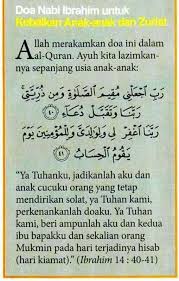 Doa Nabi Ibrahim untuk
Kebaikan Anak-anak dan Zuriat
Allah merakamkan doa ini dalam
al-Quran. Ayuh kita lazimkan-
nya sepanjang usia anak-anak:
رَبِّ ٱجْعَلْنِى مُقِيمَ ٱلصَّلَوٰةِ وَمِن ذُرِّيَّتِى
رَبَّنَا وَتَقَبَّلْ دُعَآءِ ٤٠
رَبَّنَا ٱغْفِرْ لِى وَلِوَٰلِدَىَّ وَلِلْمُؤْمِنِينَ يَوْمَ
يَقُومُ ٱلْحِسَابُ ٤١
"Ya Tuhanku, jadikanlah aku dan
anak cucuku orang yang tetap
mendirikan solat, ya Tuhan kami,
perkenankanlah doaku. Ya Tuhan
kami, beri ampunlah aku dan kedua
ibu bapakku dan sekalian orang
Mukmin pada hari terjadinya hisab
(hari kiamat)." (Ibrahim 14 : 40-41)